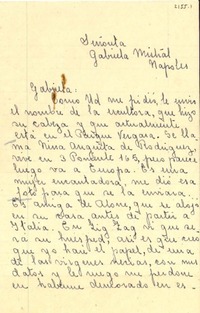 Señorita
Gabriela Mistral
Napoles
Gabriela:
Como Ud me pidió, le envío
el nombre de la escultora, que hizo
su cabeza y que actualmente
está en el Parque Vergara. Se lla
ma Nina Anguita de Rodriguez,
vive en 3 Poniente 156, pero parece
luego va a Europa. Es una
mujer encantadora, me dió esa
foto para que se la enviara.
Es amiga de Alone, que se alojó
en su casa antes de partir a
Italia. En Zig Zag vi que se
ra su huesped, así es que creo
que go hará el papel, de una
de las vírgenes necias, con mis
datos y le ruego me perdone
en haberme demorado en es-